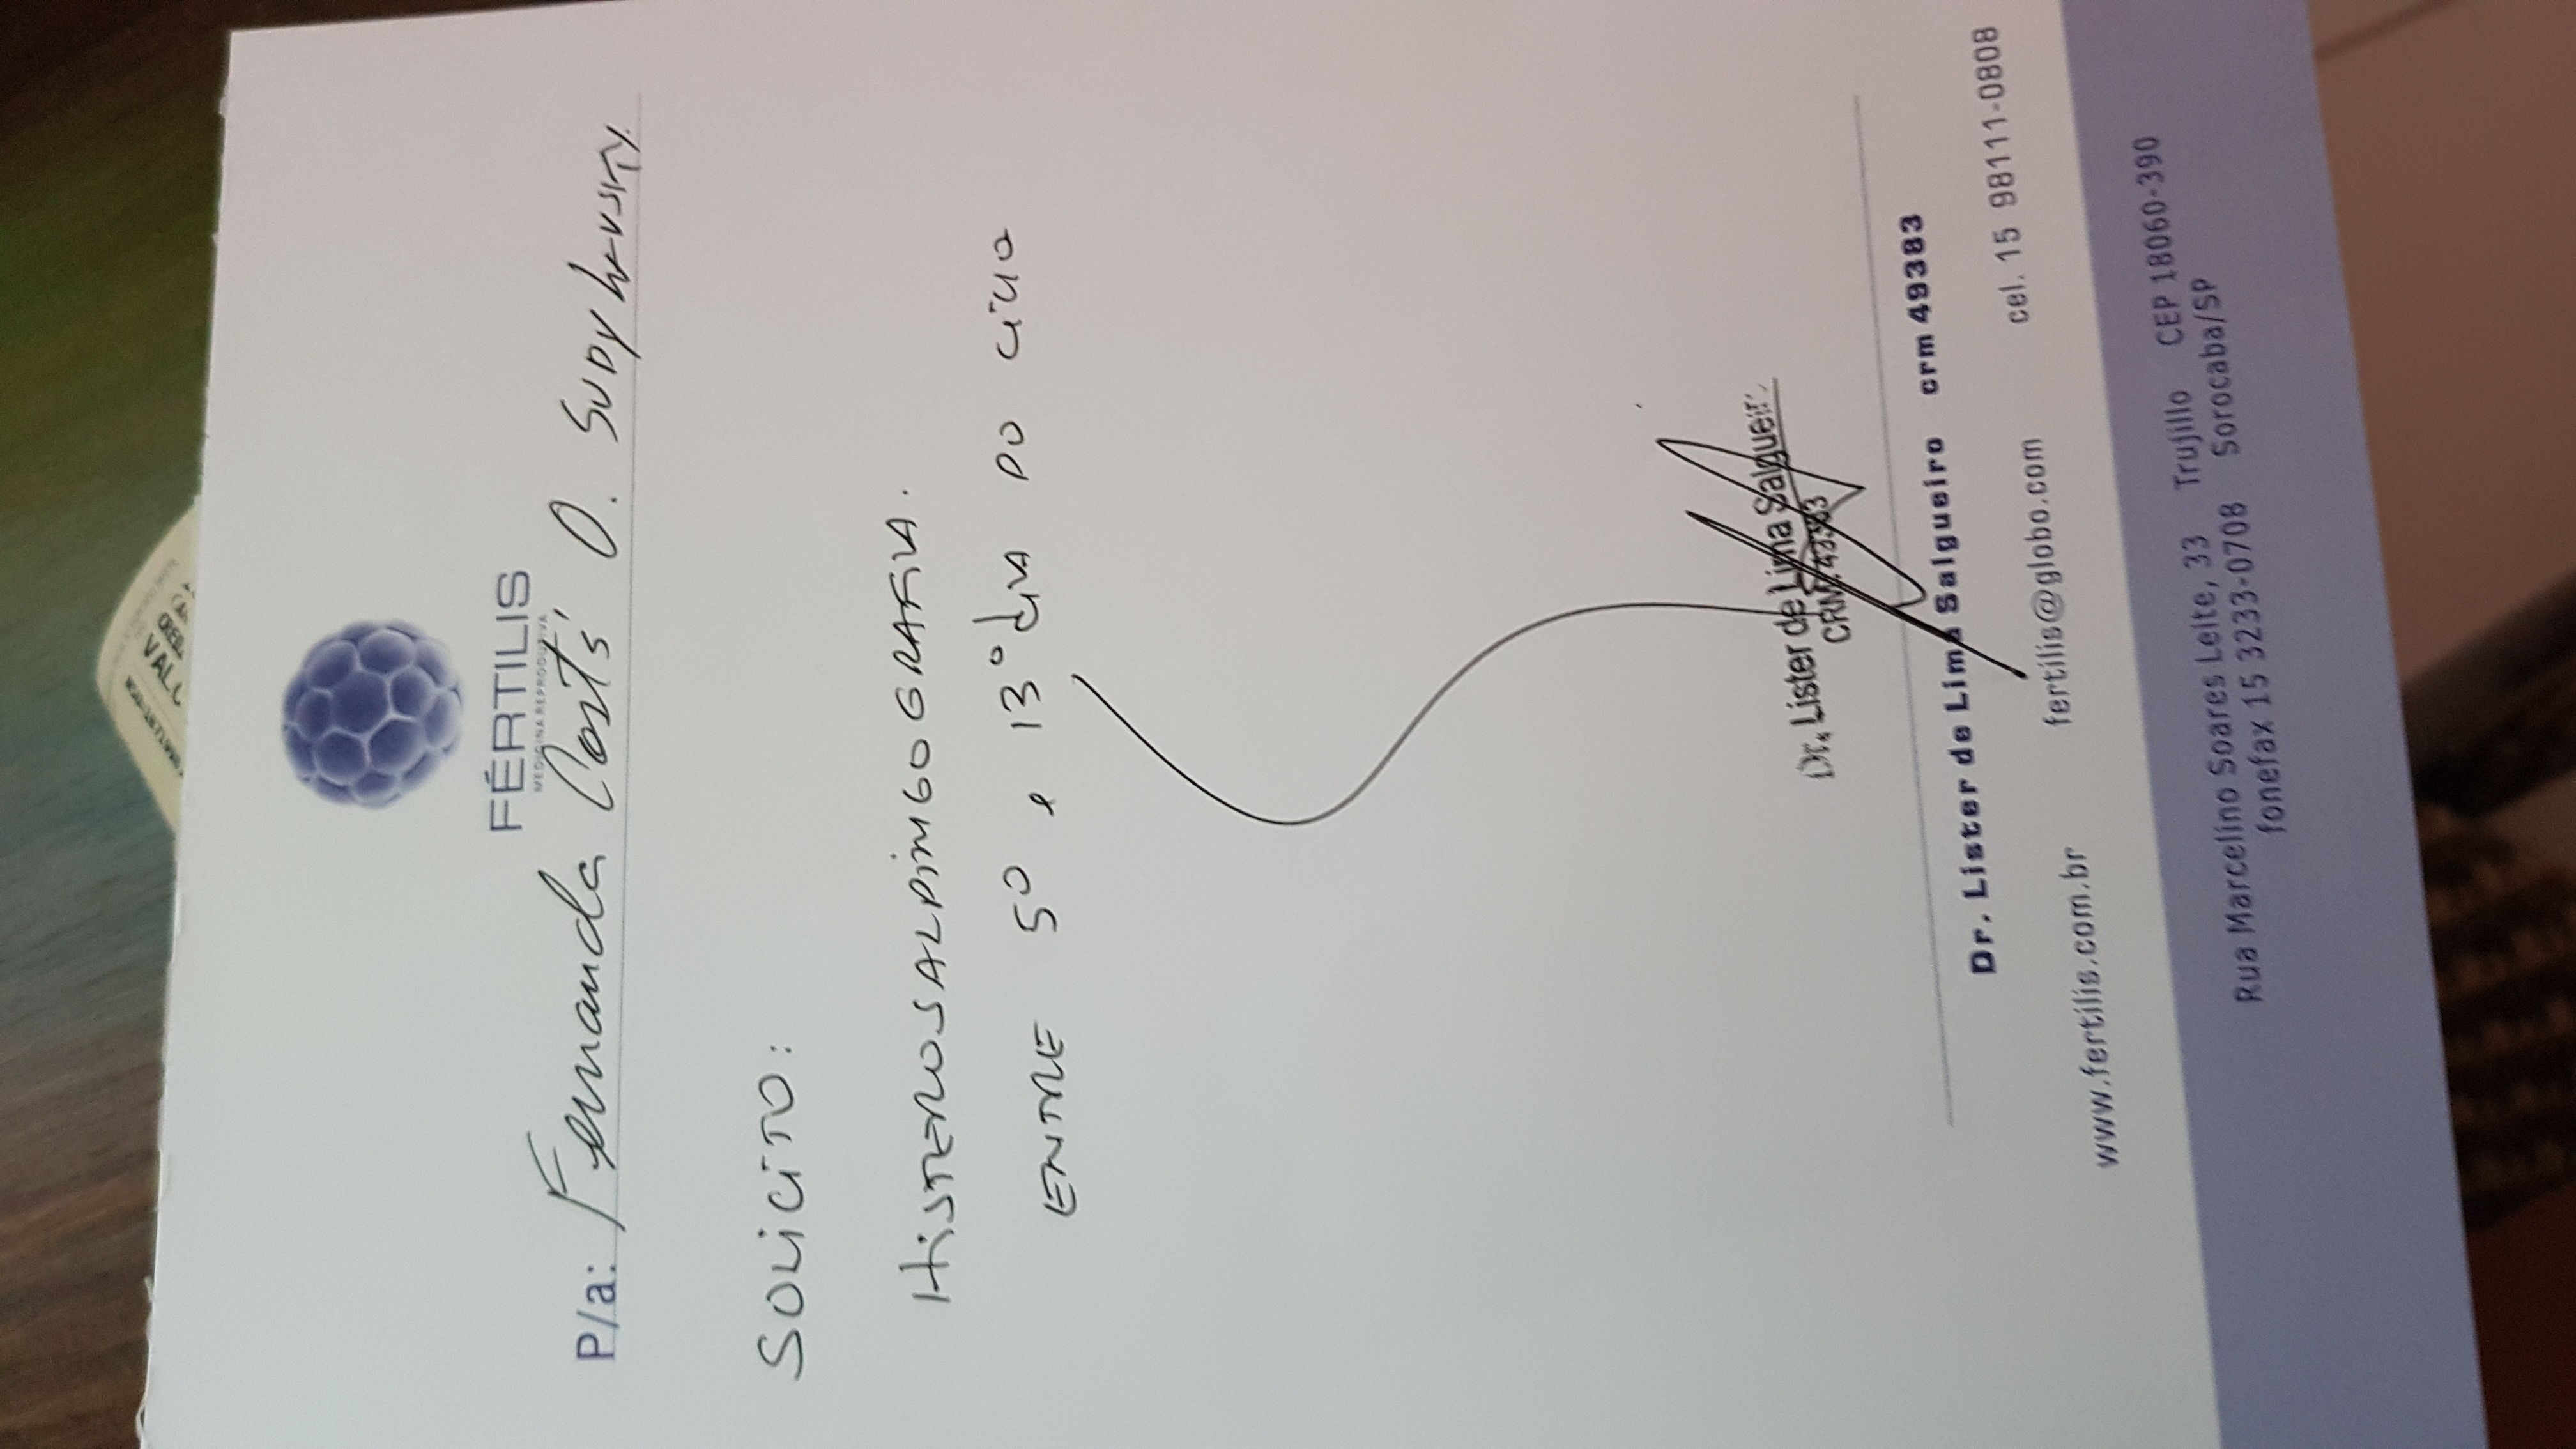 VAL
FÉRTILIS
MEDICINA REPRODUTIVA
P/a: Fernanda Costa O.
SOLICITO:
HISTEROSSALPINGOGRAFIA.
ENTRE 5º e 13º dia DO CICLO
Dr. Lister de Lima Salgueiro
CRM: 49383
Dr. Lister de Lima Salgueiro crm 49383
www.fertilis.com.br fertilis@globo.com cel. 15 98111-0808
Rua Marcelino Soares Leite, 33 Trujillo CEP 18060-390
fonefax 15 3233-0708 Sorocaba/SP